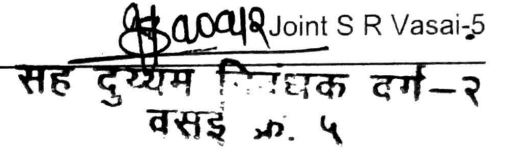 Joint S R Vasai-5
सह दुय्यम निबंधक वर्ग-२
वसई क्र. ५